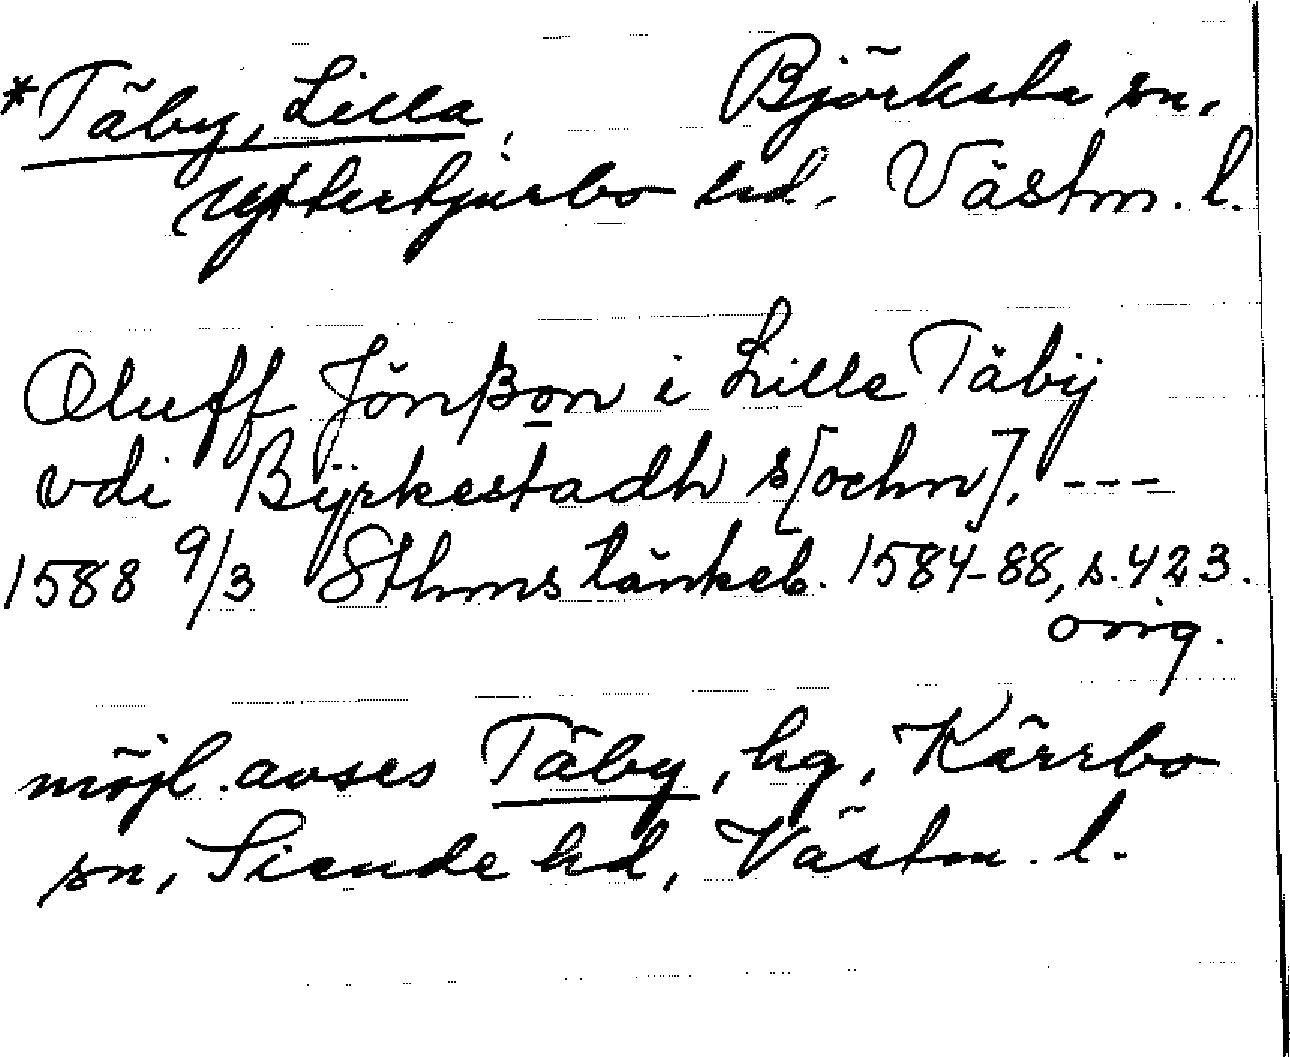 *Täby, Lilla, Björksta sn,
Yttertjurbo hd. Västm. l.
Oluff Jönßon i Lille Täbÿ
vdi Bÿrkestadh s[ochn]. ---
1588 9/3 Sthms tänkeb. 1584-88, s. 423.
orig.
möjl. avses Täby, hg, Kärrbo
sn, Siende hd, Västm. l.